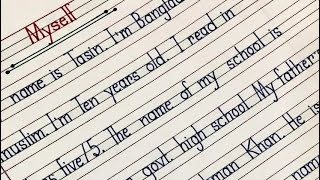 Myself
name is Tasin. I'm Banglad
muslim. I'm Ten years old. I read in
five/5. The name of my school is
govt. high school. My father's
man Khan. He is
nam